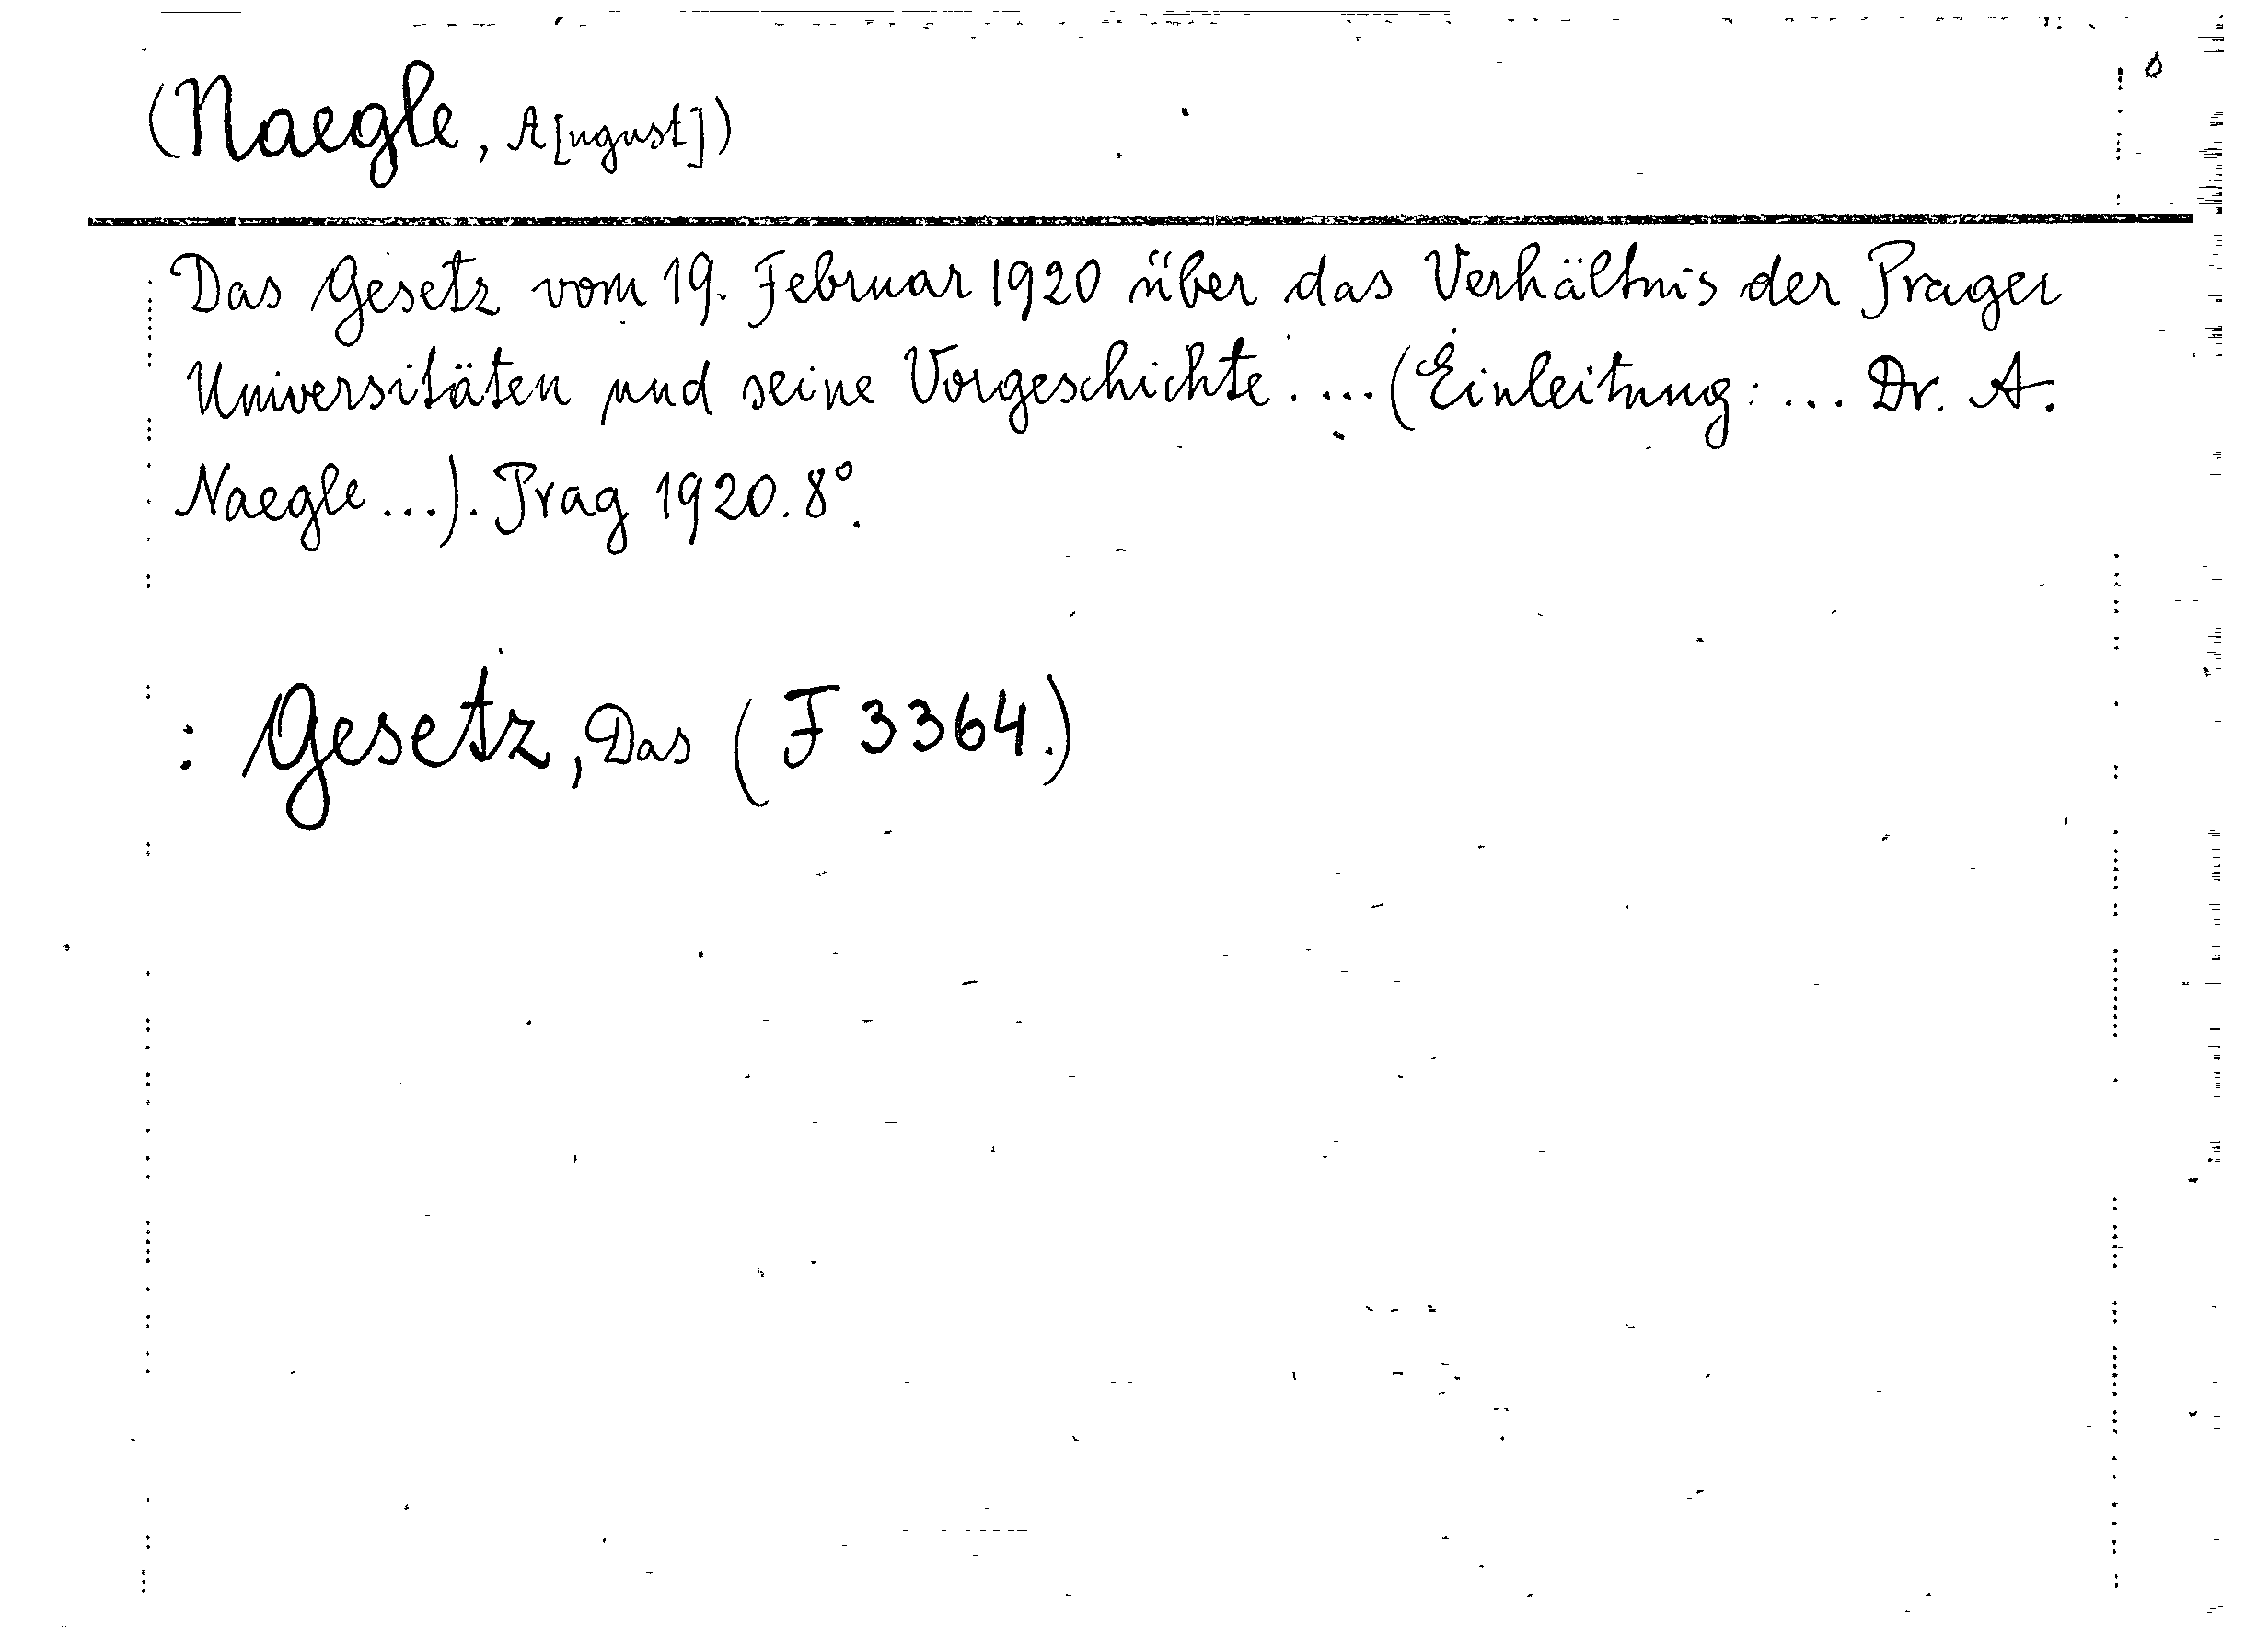 (Naegle, A[ugust])
Das Gesetz vom 19. Februar 1920 über das Verhältnis der Prager
Universitäten und seine Vorgeschichte. ... (Einleitung: ... Dr. A.
Naegle ...). Prag 1920. 8°.
: Gesetz, Das (F 3364.)